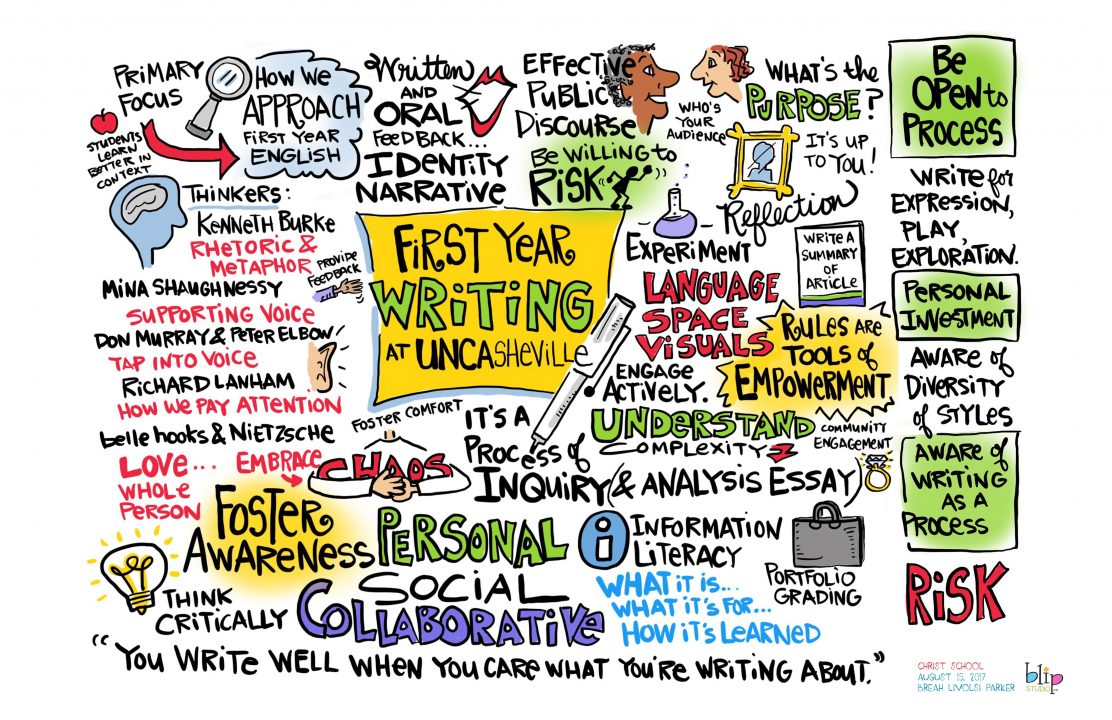 PRIMARY
FOCUS
STUDENTS
LEARN
BETTER IN
CONTEXT
HOW WE
APPROACH
FIRST YEAR
ENGLISH
Written
AND
ORAL
FEEDBACK...
IDENTITY
NARRATIVE
EFFECTIVE
PUBLIC
DISCOURSE
BE WILLING to
RISK
WHO'S
YOUR
AUDIENCE
WHAT'S the
PURPOSE?
IT'S UP
TO YOU!
Be
OPEN to
PROCESS
THINKERS:
KENNETH BURKE
RHETORIC &
METAPHOR
PROVIDE
FEEDBACK
MINA SHAUGHNESSY
SUPPORTING VOICE
DON MURRAY & PETER ELBOW
TAP INTO VOICE
RICHARD LANHAM
HOW WE PAY ATTENTION
belle hooks & NIETZSCHE
LOVE...
WHOLE
PERSON
EMBRACE
CHAOS
FOSTER COMFORT
FIRST YEAR
WRITING
AT UNCASHEVILLE
EXPERIMENT
Reflection
WRITE A
SUMMARY
OF
ARTICLE
LANGUAGE
SPACE
VISUALS
RULES ARE
TOOLS of
EMPOWERMENT
ENGAGE
ACTIVELY.
UNDERSTAND
COMPLEXITY
COMMUNITY
ENGAGEMENT
WRITE for
EXPRESSION,
PLAY,
EXPLORATION.
PERSONAL
INVESTMENT
AWARE of
DIVERSITY
of STYLES
AWARE of
WRITING
AS A
PROCESS
RISK
IT'S A
PROCESS of
INQUIRY (& ANALYSIS ESSAY)
FOSTER
AWARENESS
THINK
CRITICALLY
PERSONAL
SOCIAL
COLLABORATIVE
i
INFORMATION
LITERACY
WHAT IT IS...
WHAT IT'S FOR...
HOW IT'S LEARNED
PORTFOLIO
GRADING
"YOU WRITE WELL WHEN YOU CARE WHAT YOU'RE WRITING ABOUT."
CHRIST SCHOOL
AUGUST 15, 2017
BREAH LIVOLSI PARKER
blip
STUDIO